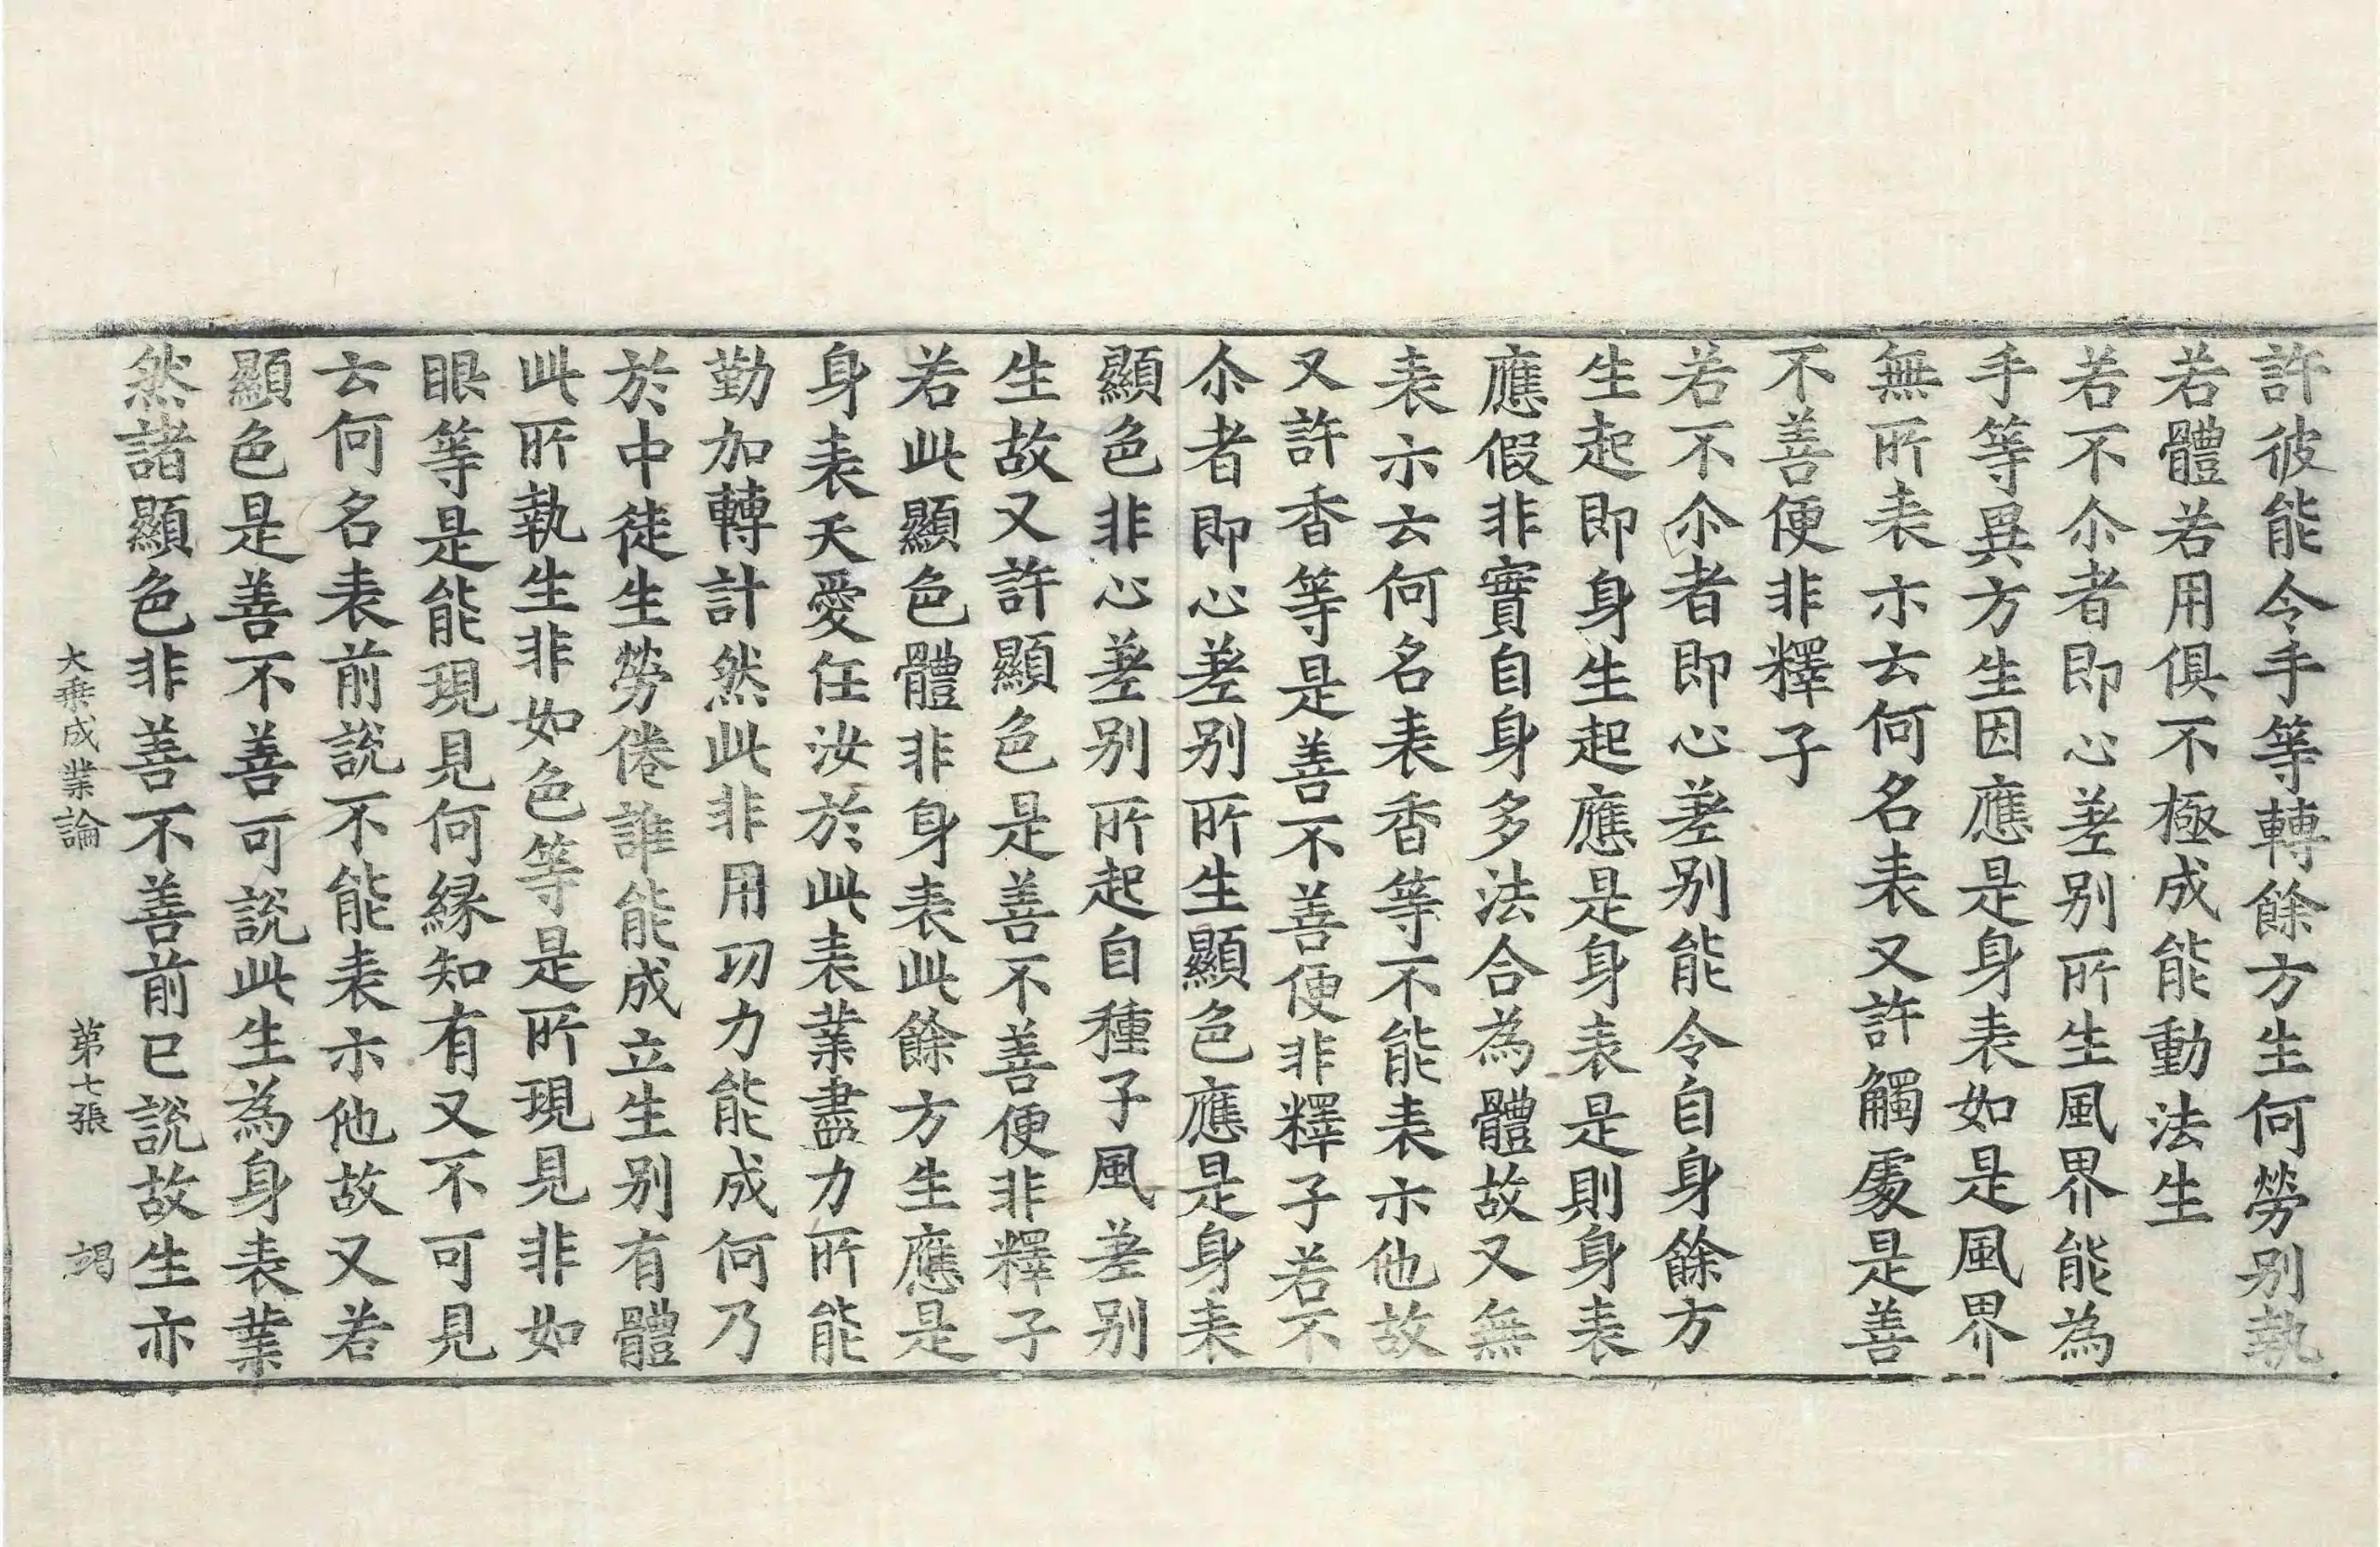 許彼能令手等轉餘方生何勞別執
若體若用俱不極成能動法生
若不尒者即心差別所生風界能為
手等異方生因應是身表如是風界
無所表示云何名表又許觸處是善
不善便非釋子
若不尒者即心差別能令自身餘方
生起即身生起應是身表是則身表
應假非實自身多法合為體故又無
表示云何名表香等不能表示他故
又許香等是善不善便非釋子若不
尒者即心差別所生顯色應是身表
顯色非心差別所起自種子風差別
生故又許顯色是善不善便非釋子
若此顯色體非身表此餘方生應是
身表天愛任汝於此表業盡力所能
勤加轉計然此非用功力能成何乃
於中徒生勞倦誰能成立生別有體
此所執生非如色等是所現見非如
眼等是能現見何緣知有又不可見
云何名表前說不能表示他故又若
顯色是善不善可說此生為身表業
然諸顯色非善不善前已說故生亦
大乗成業論　第七張　竭